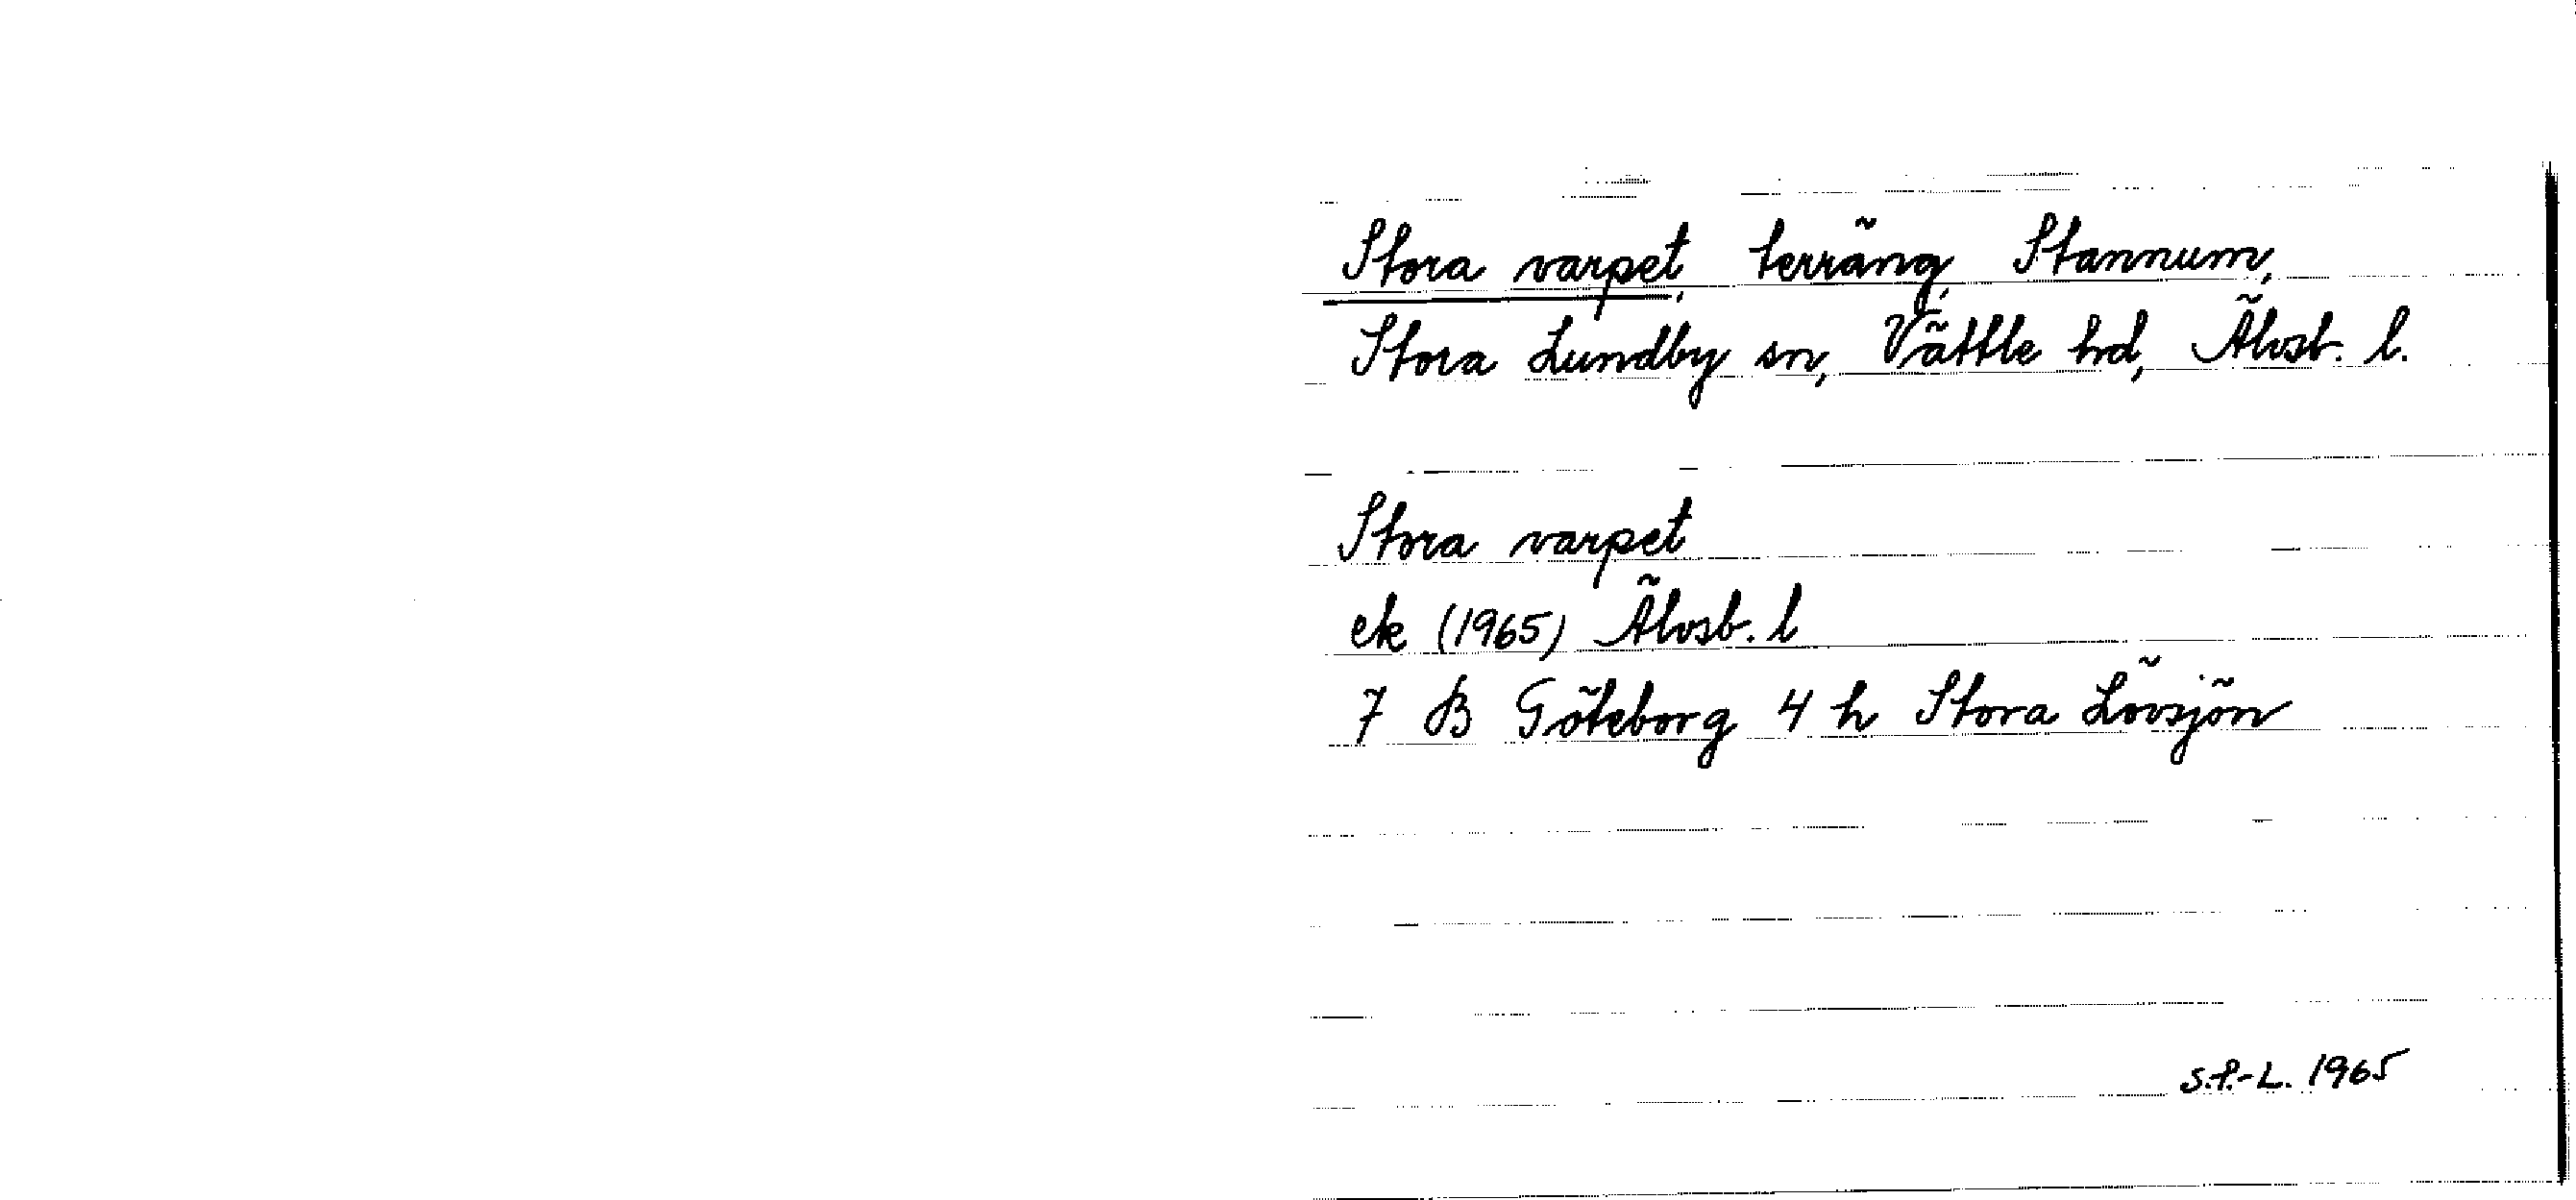 Stora varpet, terräng, Stannum,
Stora Lundby sn, Vättle hd, Älvsb. l.
Stora varpet
ek (1965) Älvsb. l
7 B Göteborg 4 h Stora Lövsjön
S.P.-L. 1965